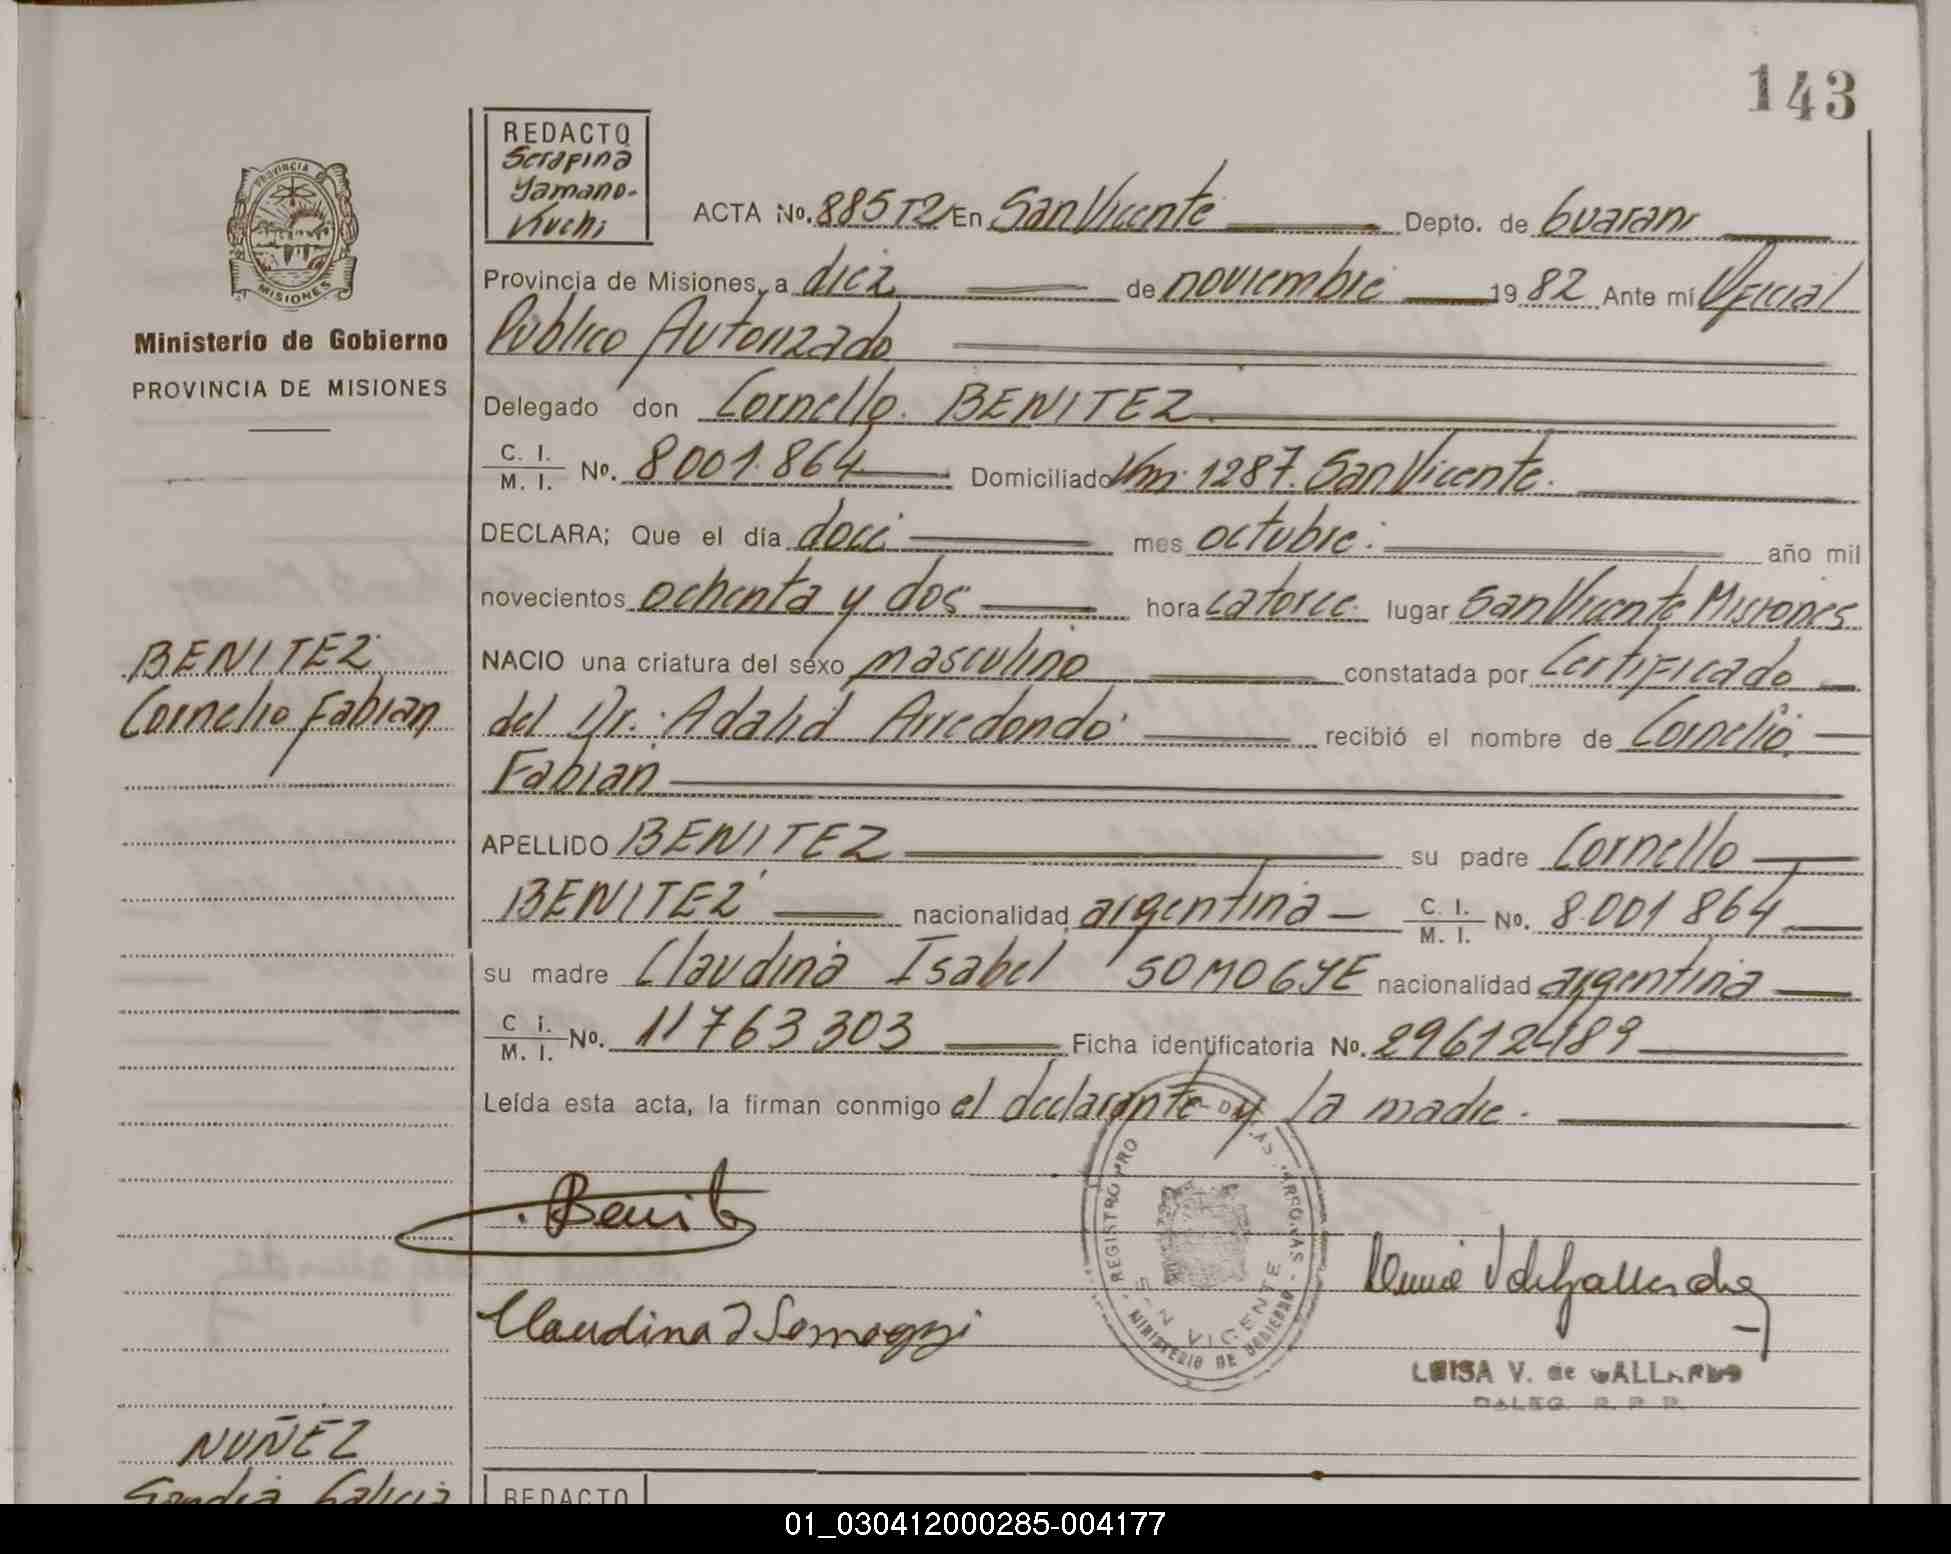 143
REDACTO
Serafina
Yamano-
Kiuchi
ACTA No. 885T2 En San Vicente Depto. de Guarani
Provincia de Misiones, a diez de noviembre 1982 Ante mí Oficial
Publico Autorizado
Delegado don Cornello. BENITEZ
C. I.
M. I. No. 8001.864 Domiciliado Km. 1287. San Vicente.
DECLARA; Que el día doce mes octubre. año mil
novecientos ochenta y dos hora catorce. lugar San Vicente Misiones
NACIO una criatura del sexo masculino constatada por Certificado
del Dr. Adalid Arredondo recibió el nombre de Cornelio
Fabian
APELLIDO BENITEZ su padre Cornello
BENITEZ nacionalidad argentina C. I.
M. I. No. 8.001 864
su madre Claudina Isabel SOMOGYE nacionalidad argentina
C. I.
M. I. No. 11763303 Ficha identificatoria No. 29612489
Leída esta acta, la firman conmigo el declarante y la madre.
PROVINCIA
MISIONES
Ministerio de Gobierno
PROVINCIA DE MISIONES
BENITEZ
Cornelio Fabian
Benit
Claudina I Somogyi
REGISTRO PRO DE LAS PERSONAS
SAN VICENTE
MINISTERIO DE GOBIERNO
LUISA V. de GALLARDO
DALEG. R. P. P.
NUÑEZ
Sandra
REDACTO
01_030412000285-004177